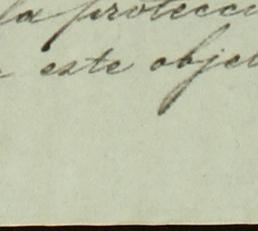 la protecci
este obje